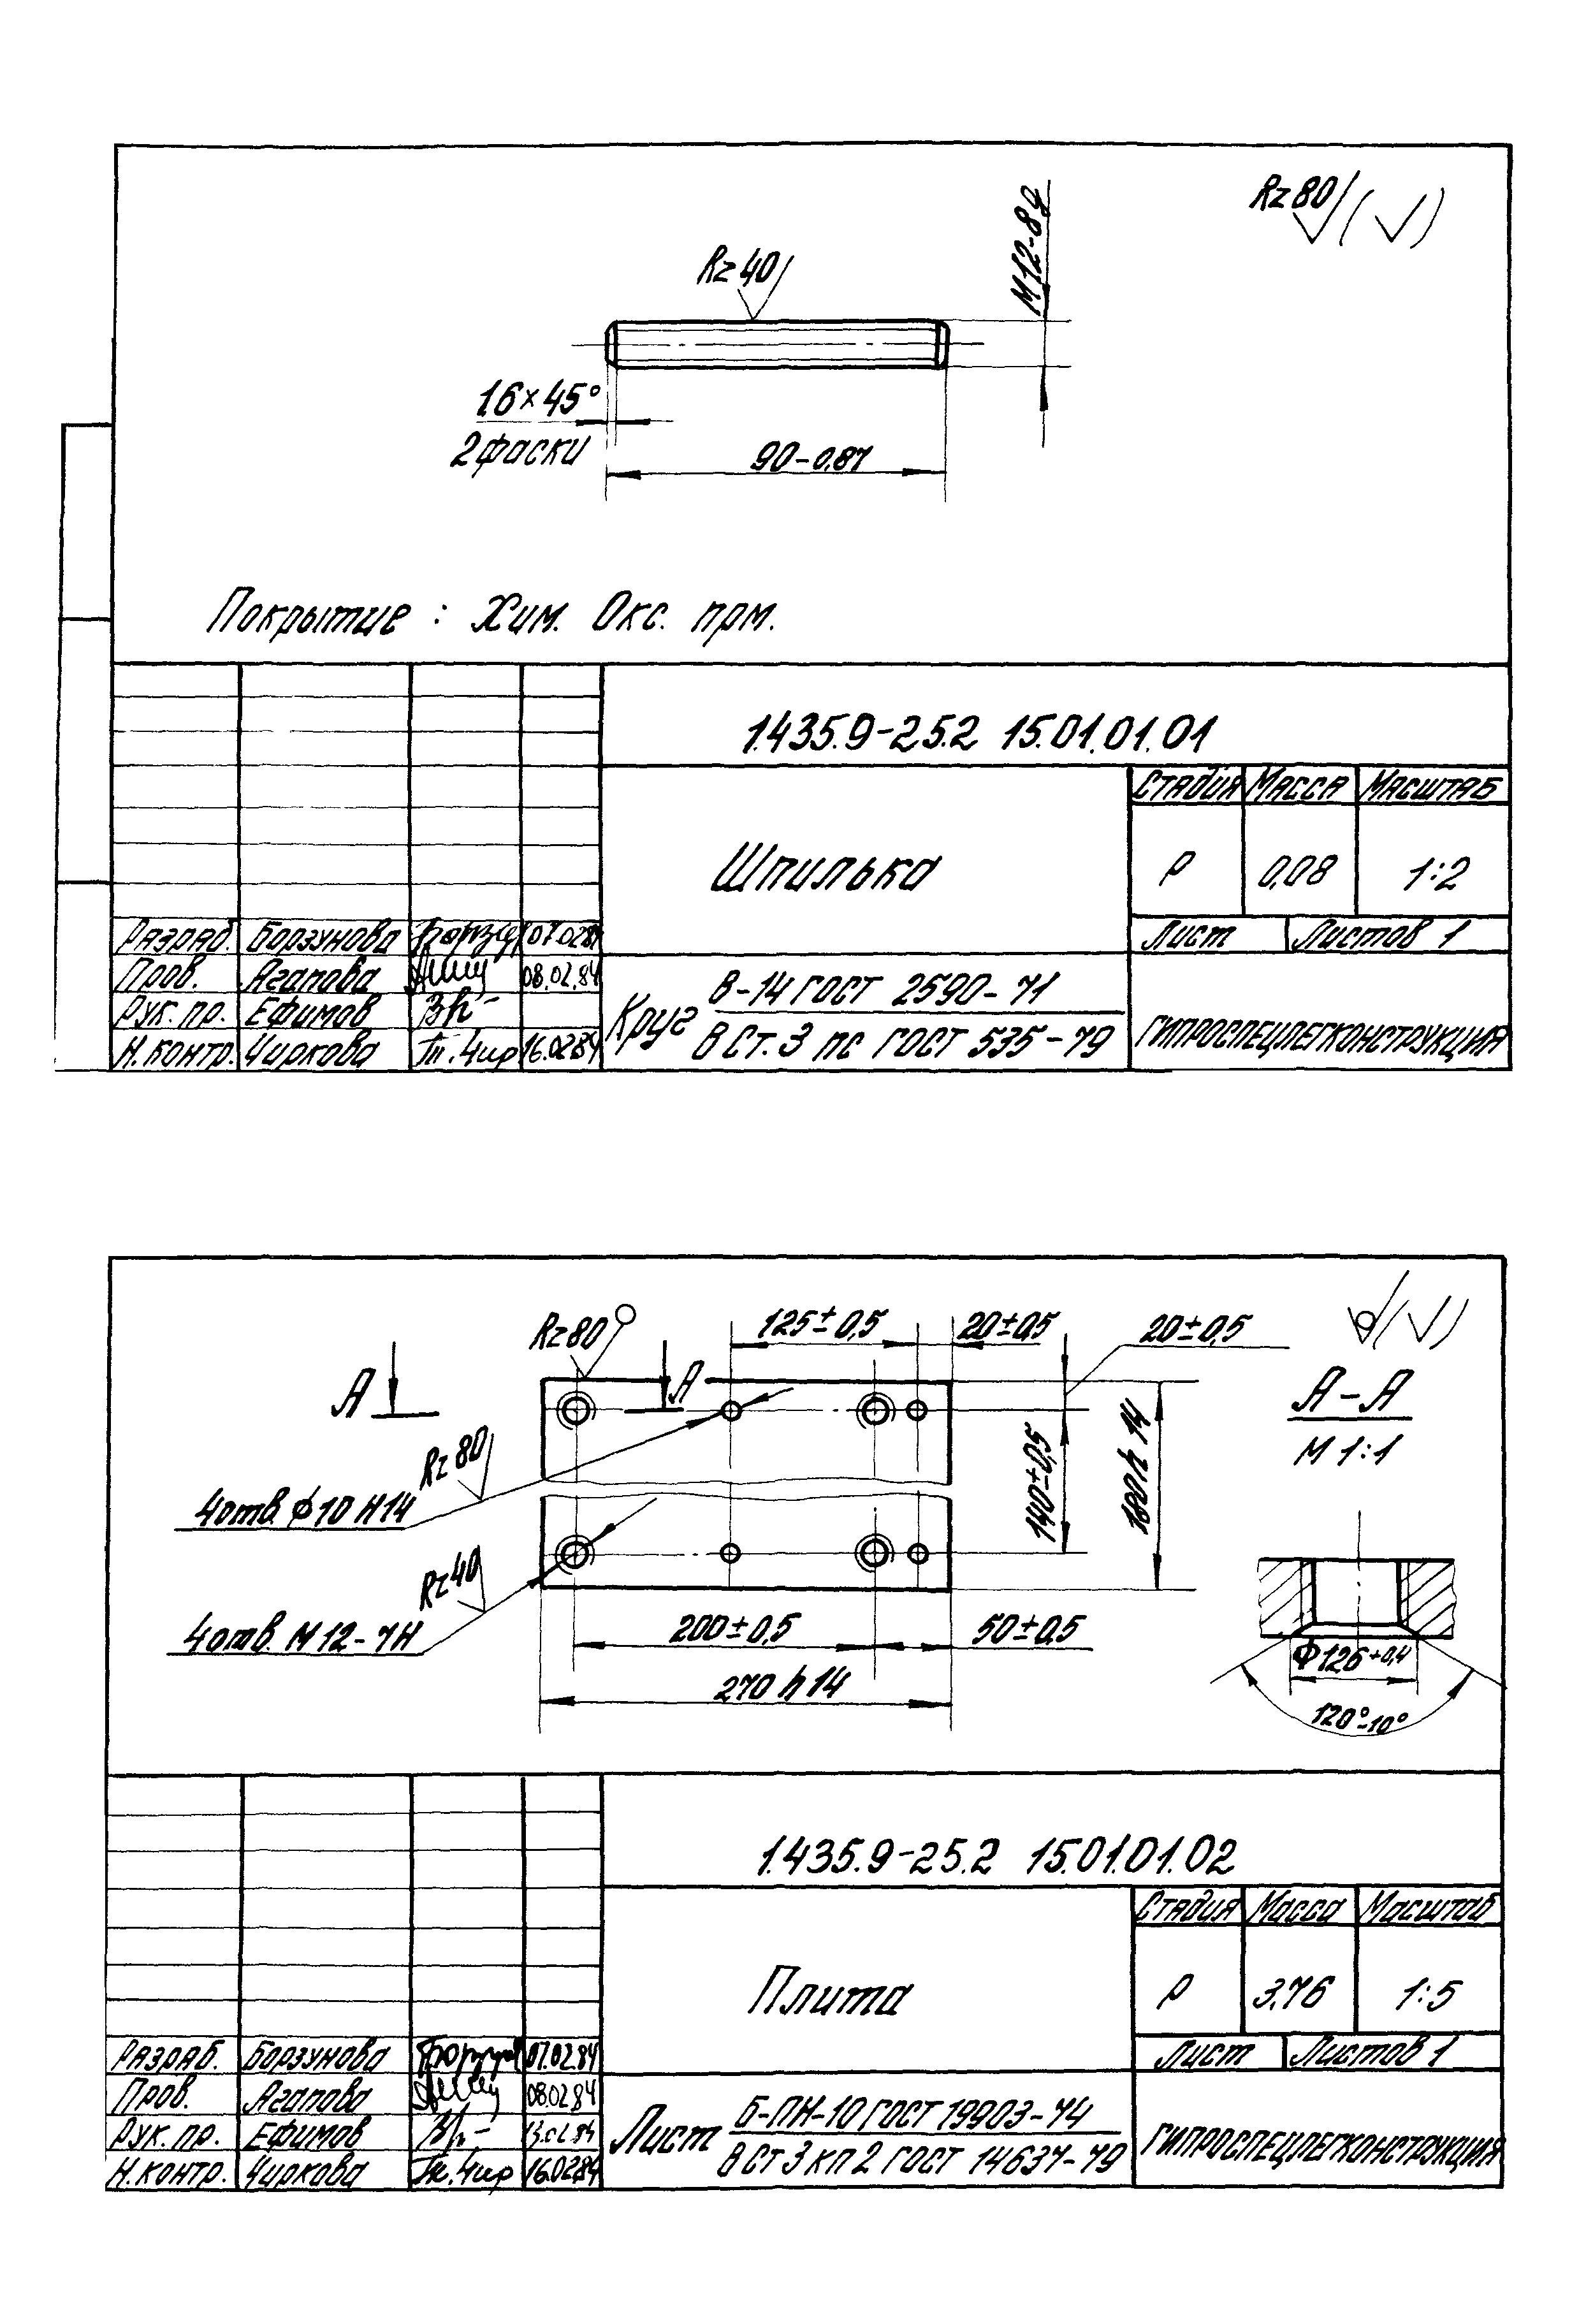 Rz 80 (√)
Rz 40
М12-8g
1,6×45°
2 фаски
90-0,87
Покрытие : Хим. Окс. прм.
1.435.9-25.2 15.01.01.01
Стадия Масса Масштаб
Шпилька
Р 0,08 1:2
Лист Листов 1
Разраб. Борзунова 07.02.84
Пров. Агапова 08.02.84
Рук. пр. Ефимов
Н. контр. Чиркова 16.02.84
Круг В-14 ГОСТ 2590-71
В Ст. 3 пс ГОСТ 535-79
ГИПРОСПЕЦЛЕГКОНСТРУКЦИЯ
Rz 80
125±0,5
20±0,5
20±0,5
(√)
А А
А-А
М 1:1
Rz 80
4 отв. ϕ10 Н14
140±0,5
180 h 14
Rz 40
4 отв. М12-7Н
200±0,5
50±0,5
270 h 14
ϕ12,6 +0,4
120°-10°
1.435.9-25.2 15.01.01.02
Стадия Масса Масштаб
Плита
Р 3,76 1:5
Лист Листов 1
Разраб. Борзунова 07.02.84
Пров. Агапова 08.02.84
Рук. пр. Ефимов 13.02.84
Н. контр. Чиркова 16.02.84
Лист Б-ПН-10 ГОСТ 19903-74
В Ст 3 кп 2 ГОСТ 14637-79
ГИПРОСПЕЦЛЕГКОНСТРУКЦИЯ